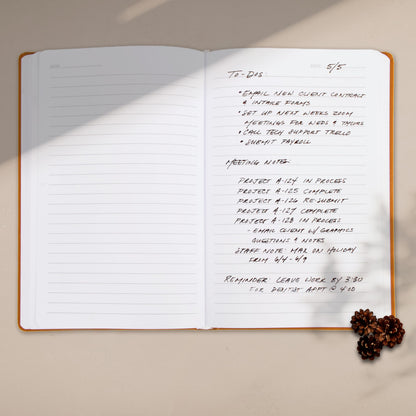 5/5
TO-DOS:
• EMAIL NEW CLIENT CONTRACT
& INTAKE FORMS
• SET UP NEXT WEEKS ZOOM
MEETINGS FOR WEDS & THURS
• CALL TECH SUPPORT TRELLO
• SUBMIT PAYROLL
MEETING NOTES:
PROJECT A-124 IN PROCESS
PROJECT A-125 COMPLETE
PROJECT A-126 RE-SUBMIT
PROJECT A-127 COMPLETE
PROJECT A-128 IN PROCESS
- EMAIL CLIENT W/ GRAPHICS
QUESTIONS & NOTES
STAFF NOTE: MAX ON HOLIDAY
FROM 6/4 - 6/9
REMINDER: LEAVE WORK BY 3:30
FOR DENTIST APPT @ 4:00